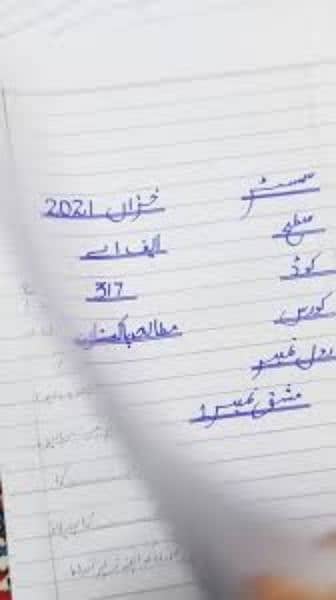 سمسٹر خزاں 2021
سطح ایف اے
کوڈ 317
کورس مطالعہ پاکستان
رول نمبر
مشق نمبر 1